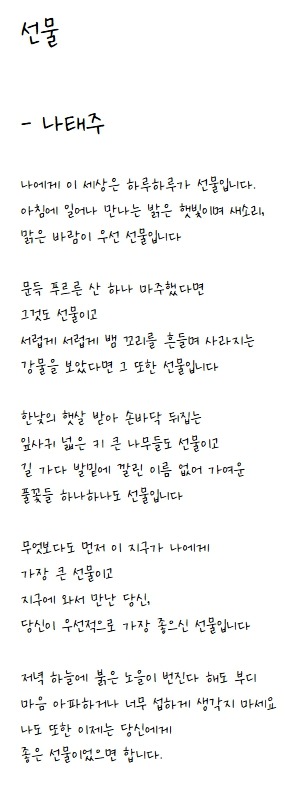 선물
- 나태주
나에게 이 세상은 하루하루가 선물입니다.
아침에 일어나 만나는 밝은 햇빛이며 새소리,
맑은 바람이 우선 선물입니다
문득 푸르른 산 하나 마주했다면
그것도 선물이고
서럽게 서럽게 뱀 꼬리를 흔들며 사라지는
강물을 보았다면 그 또한 선물입니다
한낮의 햇살 받아 손바닥 뒤집는
잎사귀 넓은 키 큰 나무들도 선물이고
길 가다 발밑에 깔린 이름 없어 가여운
풀꽃들 하나하나도 선물입니다
무엇보다도 먼저 이 지구가 나에게
가장 큰 선물이고
지구에 와서 만난 당신,
당신이 우선적으로 가장 좋으신 선물입니다
저녁 하늘에 붉은 노을이 번진다 해도 부디
마음 아파하거나 너무 섭하게 생각지 마세요
나도 또한 이제는 당신에게
좋은 선물이었으면 합니다.